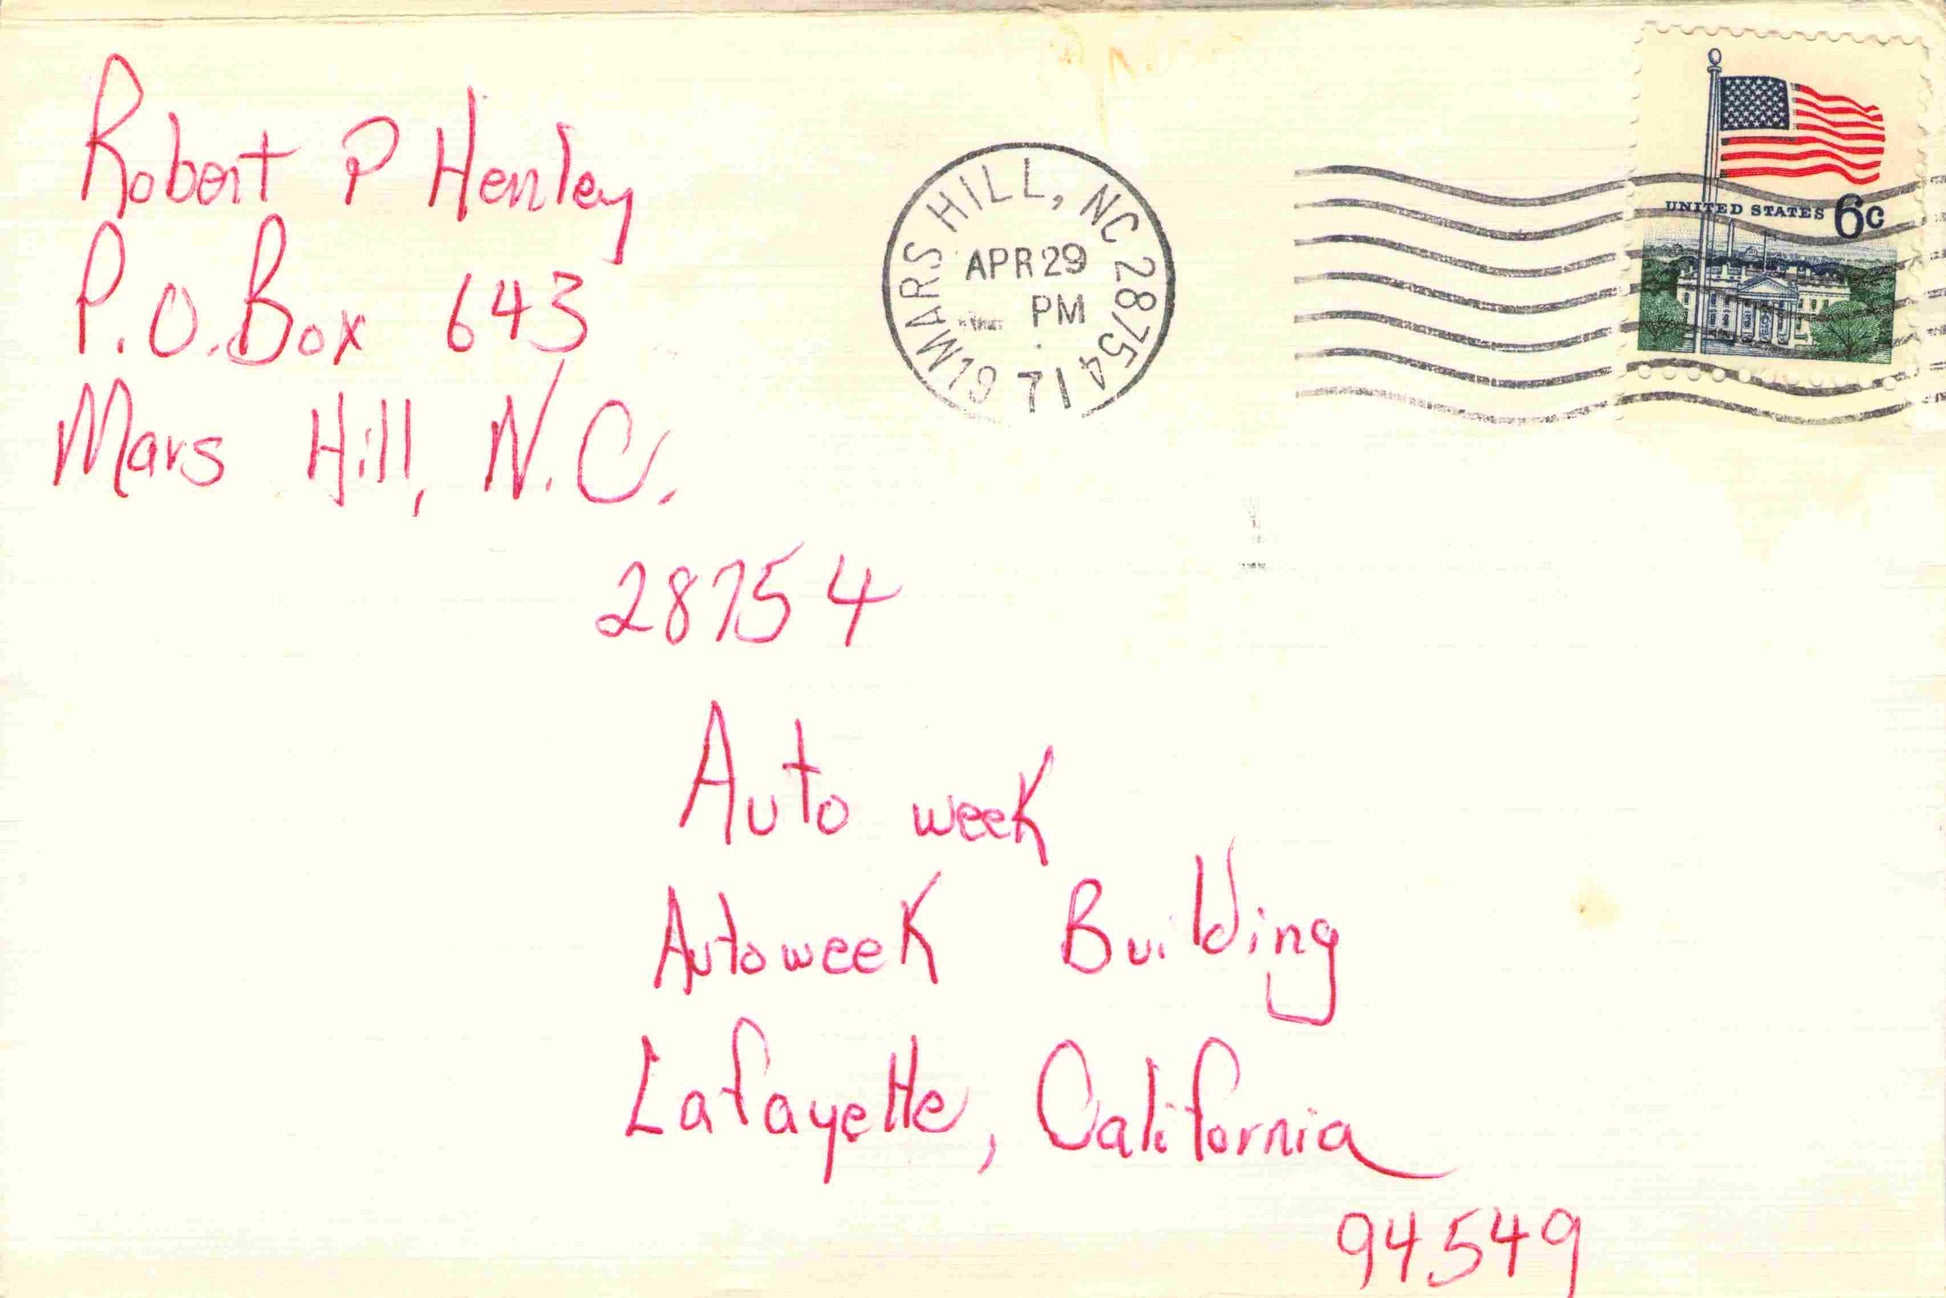 Robert P Henley
P.O. Box 643
Mars Hill, N.C.
28754
MARS HILL, NC 28754
APR 29
PM
71
UNITED STATES 6c
Auto week
Autoweek Building
Lafayette, California
94549